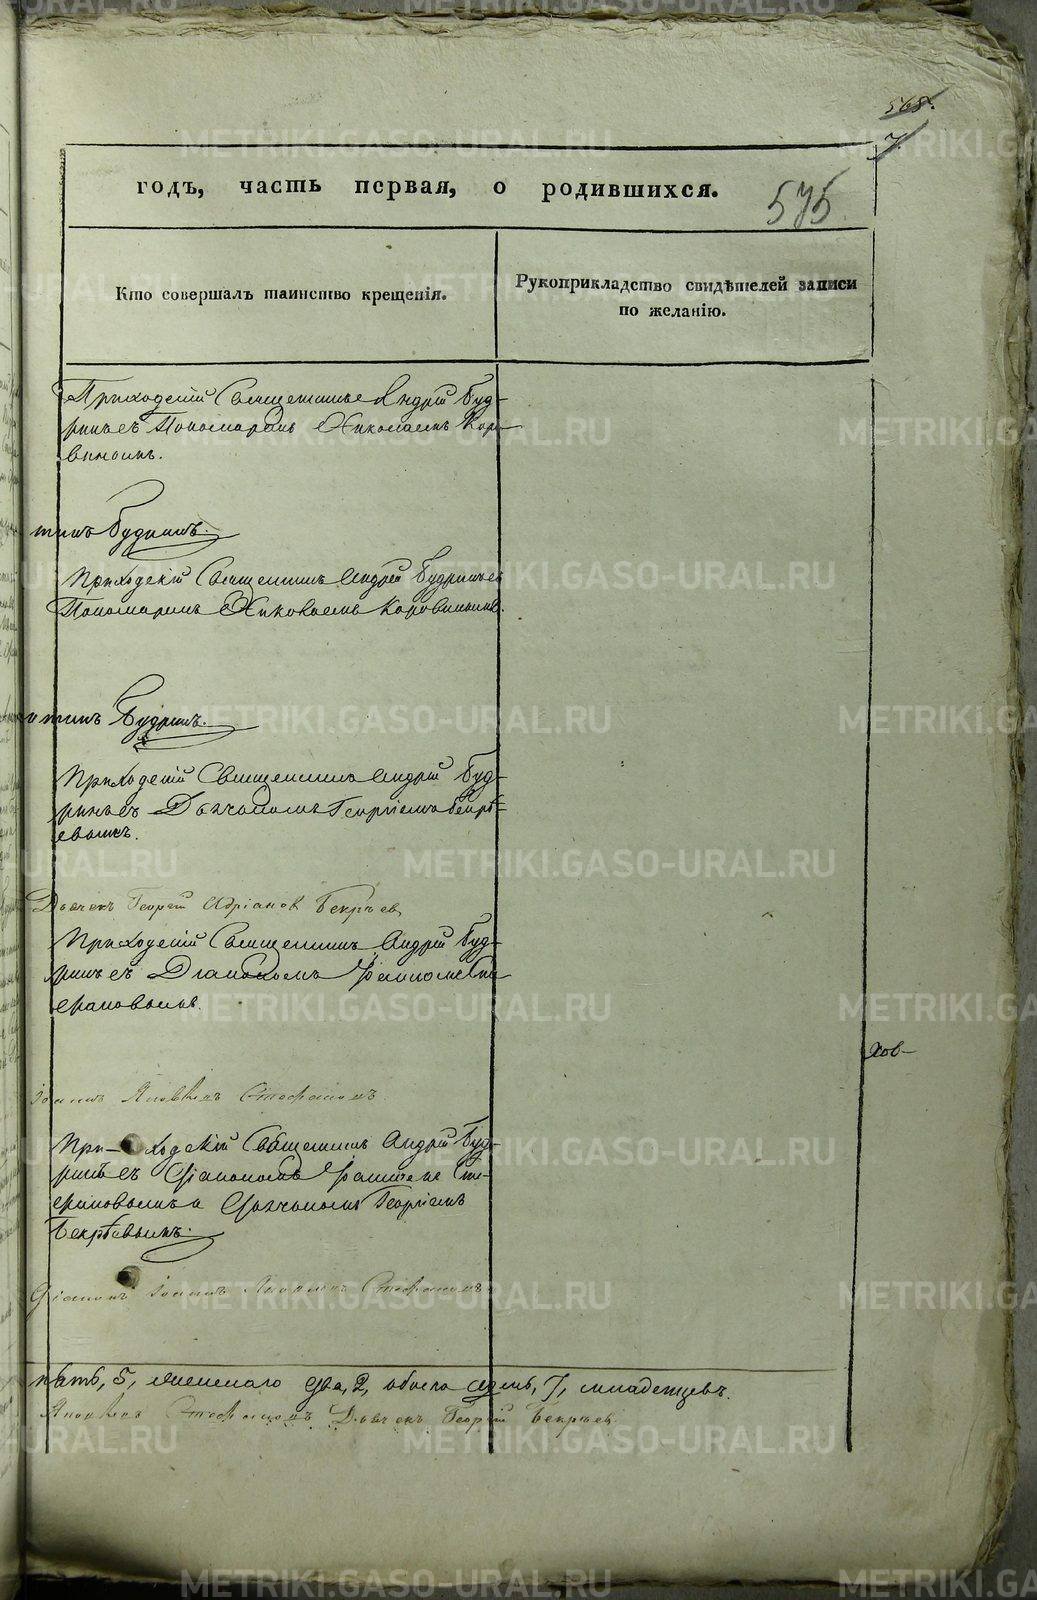 568.
7
годъ, часть первая, о родившихся.
575
Кто совершалъ таинство крещенія.
Рукоприкладство свидѣтелей записи
по желанію.
Приходскій Священникъ Андрей Буд-
ринъ съ Пономаремъ Николаемъ Коро-
винымъ.
тинъ Будринъ.
Приходскій Священникъ Андрей Будринъ съ
Пономаремъ Николаемъ Коровинымъ.
тинъ Будринъ.
Приходскій Священникъ Андрей Буд-
ринъ съ Дьячкомъ Георгіемъ Бекрѣ-
евымъ.
Дьячекъ Георгій Адріанов Бекрѣев
Приходскій Священникъ Андрей Буд-
ринъ съ Діакономъ
Іоаннъ Яковлевъ Стефановъ
хов-
При-ходскій Священникъ Андрей Буд-
ринъ съ Діакономъ
и Дьячкомъ Георгіемъ
Бекрѣевымъ.
Діаконъ Іоаннъ Яковлевъ Стефановъ
пять, 5, женскаго два, 2, обоего седмь, 7, младенцевъ.
Яковлевъ Стефановъ Дьячекъ Георгій Бекрѣев
METRIKI.GASO-URAL.RU